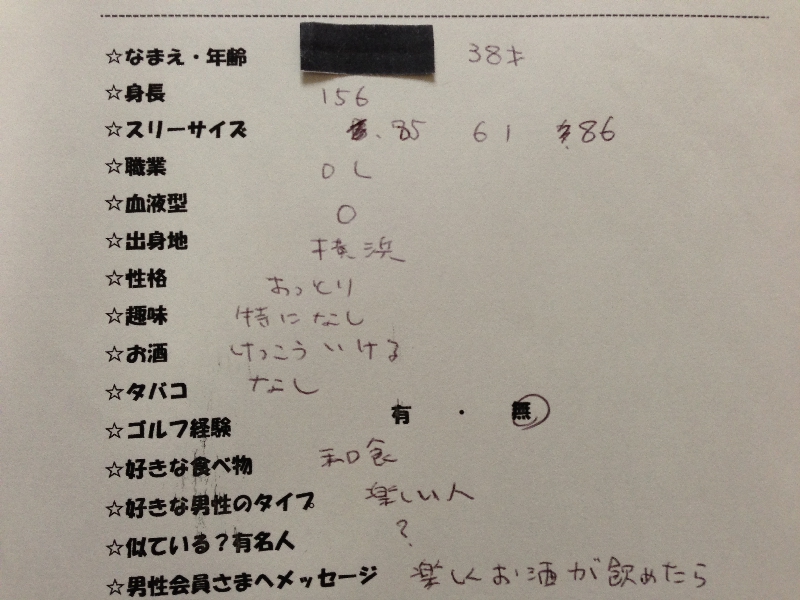 ☆なまえ・年齢 38才
☆身長 156
☆スリーサイズ 85 61 86
☆職業 OL
☆血液型 O
☆出身地 横浜
☆性格 おっとり
☆趣味 特になし
☆お酒 けっこういける
☆タバコ なし
☆ゴルフ経験 有 ・ 無
☆好きな食べ物 和食
☆好きな男性のタイプ 楽しい人
☆似ている？有名人 ?
☆男性会員さまへメッセージ 楽しくお酒が飲めたら